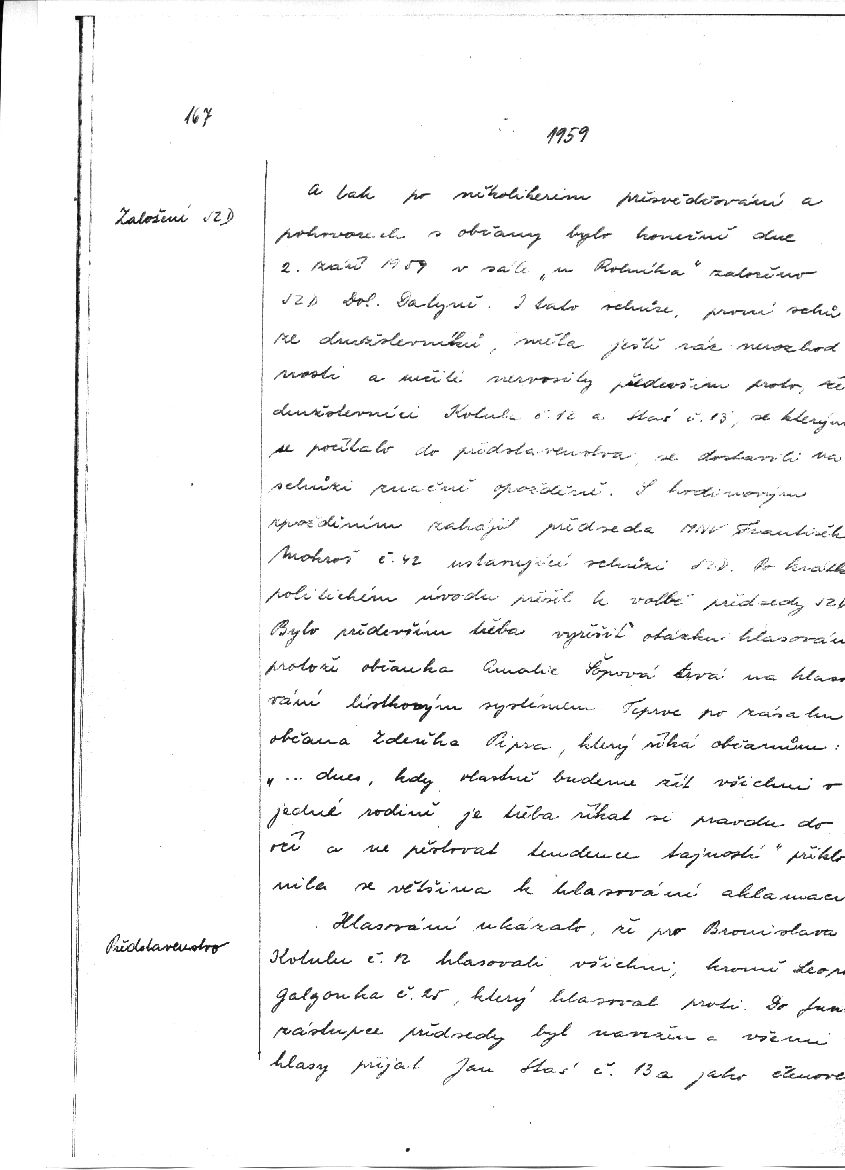 167
1959
Založení JZD
A tak po několikerém přesvědčování a
pohovorech s občany bylo konečně dne
2. září 1959 v sále „u Rolníka" založeno
JZD Dol. Datyně. I tato schůze, první schů
ze družstevníků, měla ještě ráz nerozhod
nosti a určité nervosity především proto, že
družstevníci Kotula č. 12 a Staś č. 13, se kterým
se počítalo do představenstva, se dostavili na
schůzi značně opožděně. S hodinovým
zpožděním zahájil předseda MNV František
Mokroš č. 42 ustavující schůzi JZD. Po krátk
politickém úvodu přešel k volbě předsedy JZD
Bylo především třeba vyřešit otázku hlasován
protože občanka Amalie Šopová trvá na hlaso
vání lístkovým systémem Teprve po zásahu
občana Zdeňka Pipra, který říká občanům:
„... dnes, kdy vlastně budeme žít všichni v
jedné rodině, je třeba říkat si pravdu do
očí a ne pěstovat tendence tajností" přiklo
nila se většina k hlasování aklamací
Představenstvo
Hlasování ukázalo, že pro Bronislava
Kotulu č. 12 hlasovali všichni, kromě Leop
Galgonka č. 25, který hlasoval proti. Do fun
zástupce předsedy byl navržen a všemi
hlasy přijat Jan Staś č. 13 a jako členové